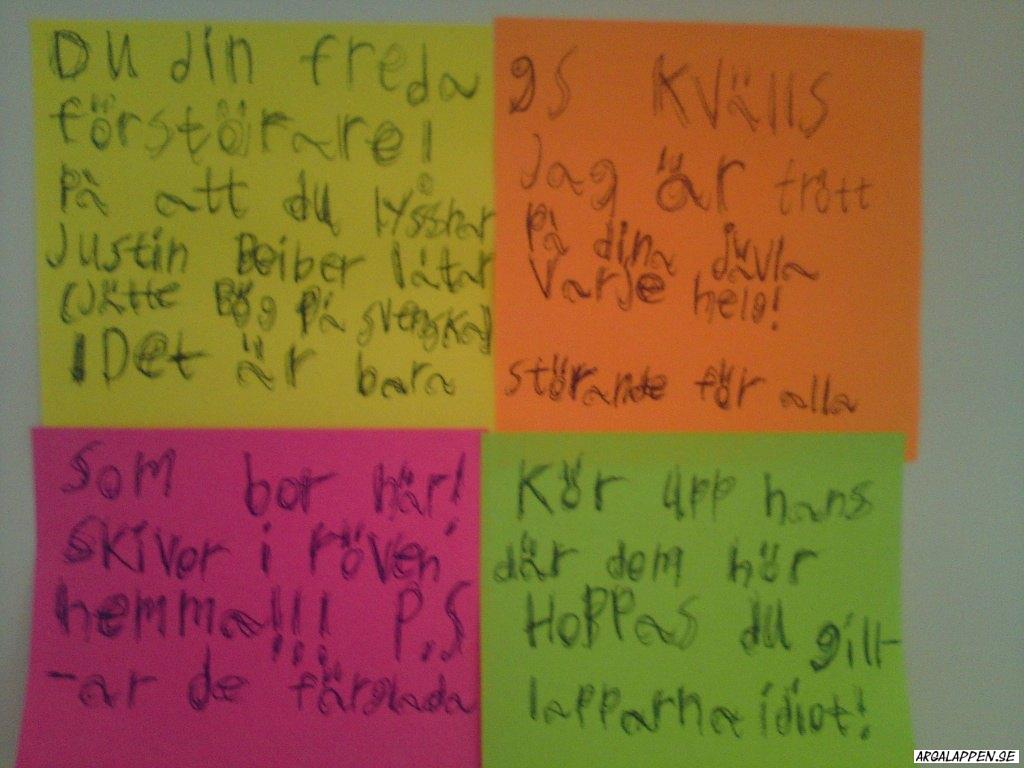 DU din freda gs KVälls
förstörare! Jag är trött
På att du lyssnar På dina jävla
Justin Beiber låtar Varje helg!
(Jätte Bög På svenska)
! Det är bara störande för alla
Som bor här! Kör upp hans
SKivor i röven där dom hör
hemma!!! P.S HoPPas du gill-
-ar de färglada lapparna idiot!
ARGALAPPEN.SE